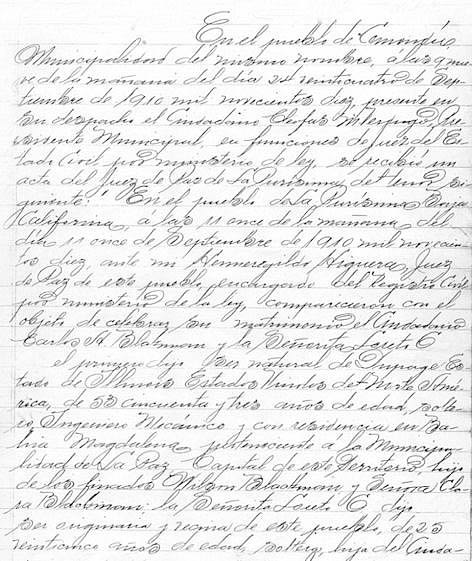 En el pueblo de Comondú,
Municipalidad del mismo nombre, á las 9 nue-
ve de la mañana del día 24 veinticuatro de Sep-
tiembre de 1910 mil novecientos diez, presente en
su despacho el Ciudadano Cleofas Pre-
sidente Municipal, en funciones de Juez del Es-
tado Civil por ministerio de ley, se recibió un
acta del Juez de Paz de La Purísima del tenor si-
guiente: "En el pueblo de la Purísima Baja
California, á las 11 once de la mañana del
día 11 once de Septiembre de 1910 mil novecien-
tos diez, ante mi Hermenegildo Higuera, Juez
de Paz de este pueblo, encargado del Registro Civil
por ministerio de la ley, comparecieron con el
objeto de celebrar su matrimonio el Ciudadano
Carlos A. Blackman y la Señorita Loreto C
el primero dijo ser natural de Es-
tado de Illinois Estados Unidos de Norte Amé-
rica, de 53 cincuenta y tres años de edad, solte-
ro, Ingeniero Mecánico y con residencia en Ba-
hía Magdalena perteneciente á la Municipa-
lidad de La Paz Capital de este Territorio, hijo
de los finados Wilson Blackman y Señora Cla-
ra Blackman; la Señorita Loreto C dijo
ser originaria y vecina de este pueblo, de 25
veinticinco años de edad, soltera, hija del Ciuda-